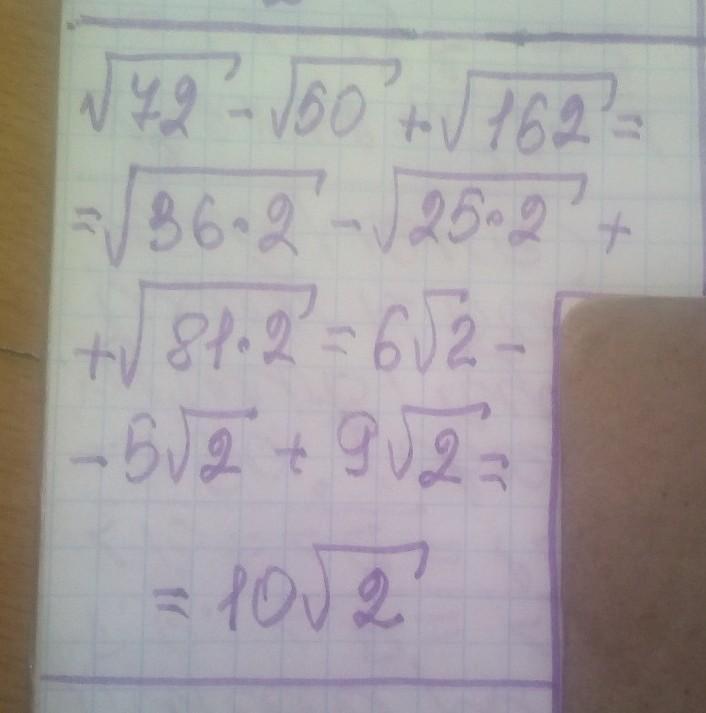 √72 - √50 + √162 =
= √36·2 - √25·2 +
+ √81·2 = 6√2 -
- 5√2 + 9√2 =
= 10√2